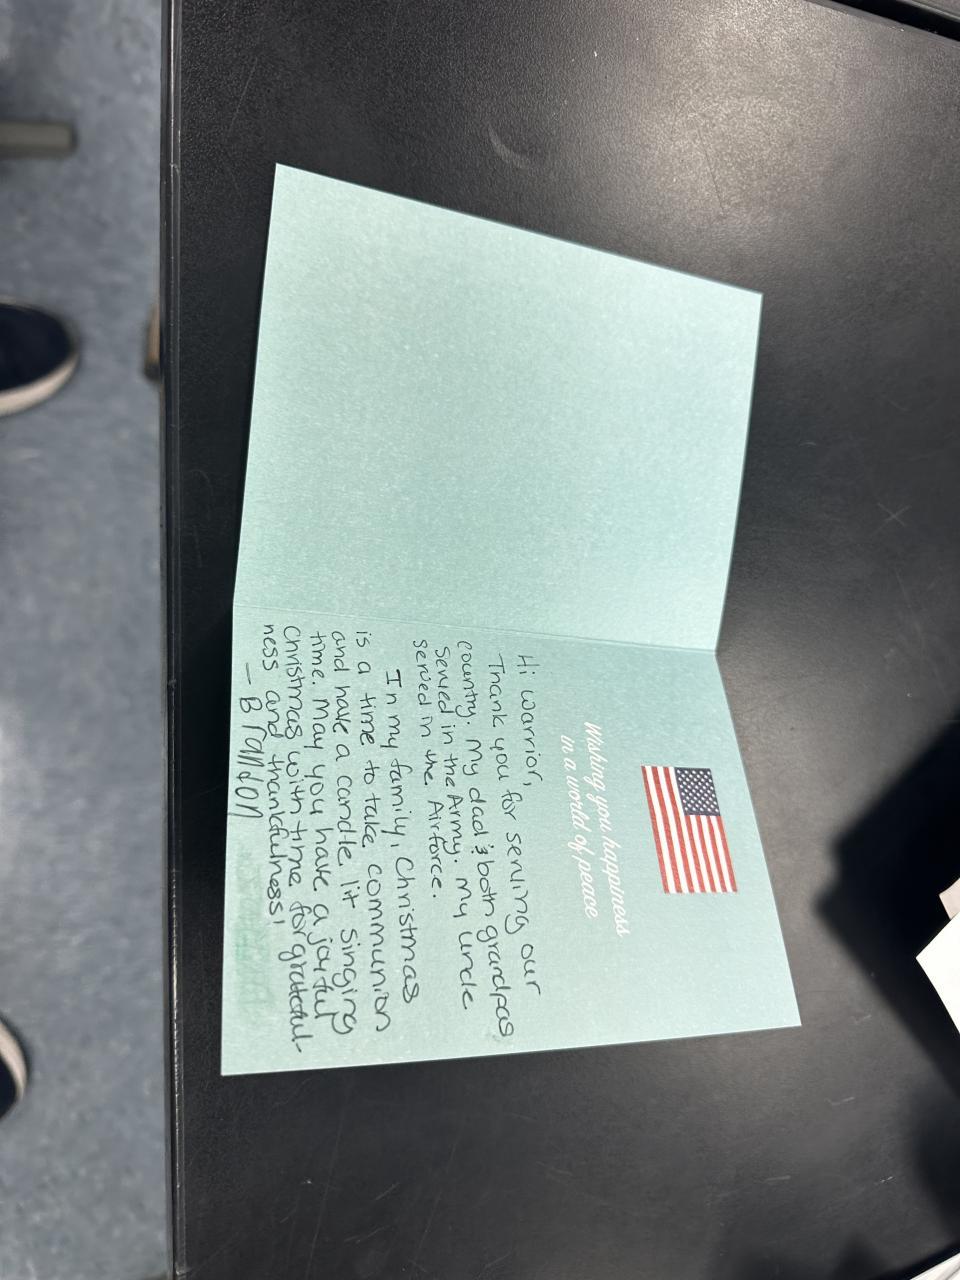 Wishing you happiness
in a world of peace
Hi warrior,
Thank you for serving our
country. My dad & both grandpas
served in the Army. My uncle
served in the Airforce.
In my family, Christmas
is a time to take communion
and have a candle lit singing
time. May you have a joyful
Christmas with time for grateful-
ness and thankfulness!
- Brandon